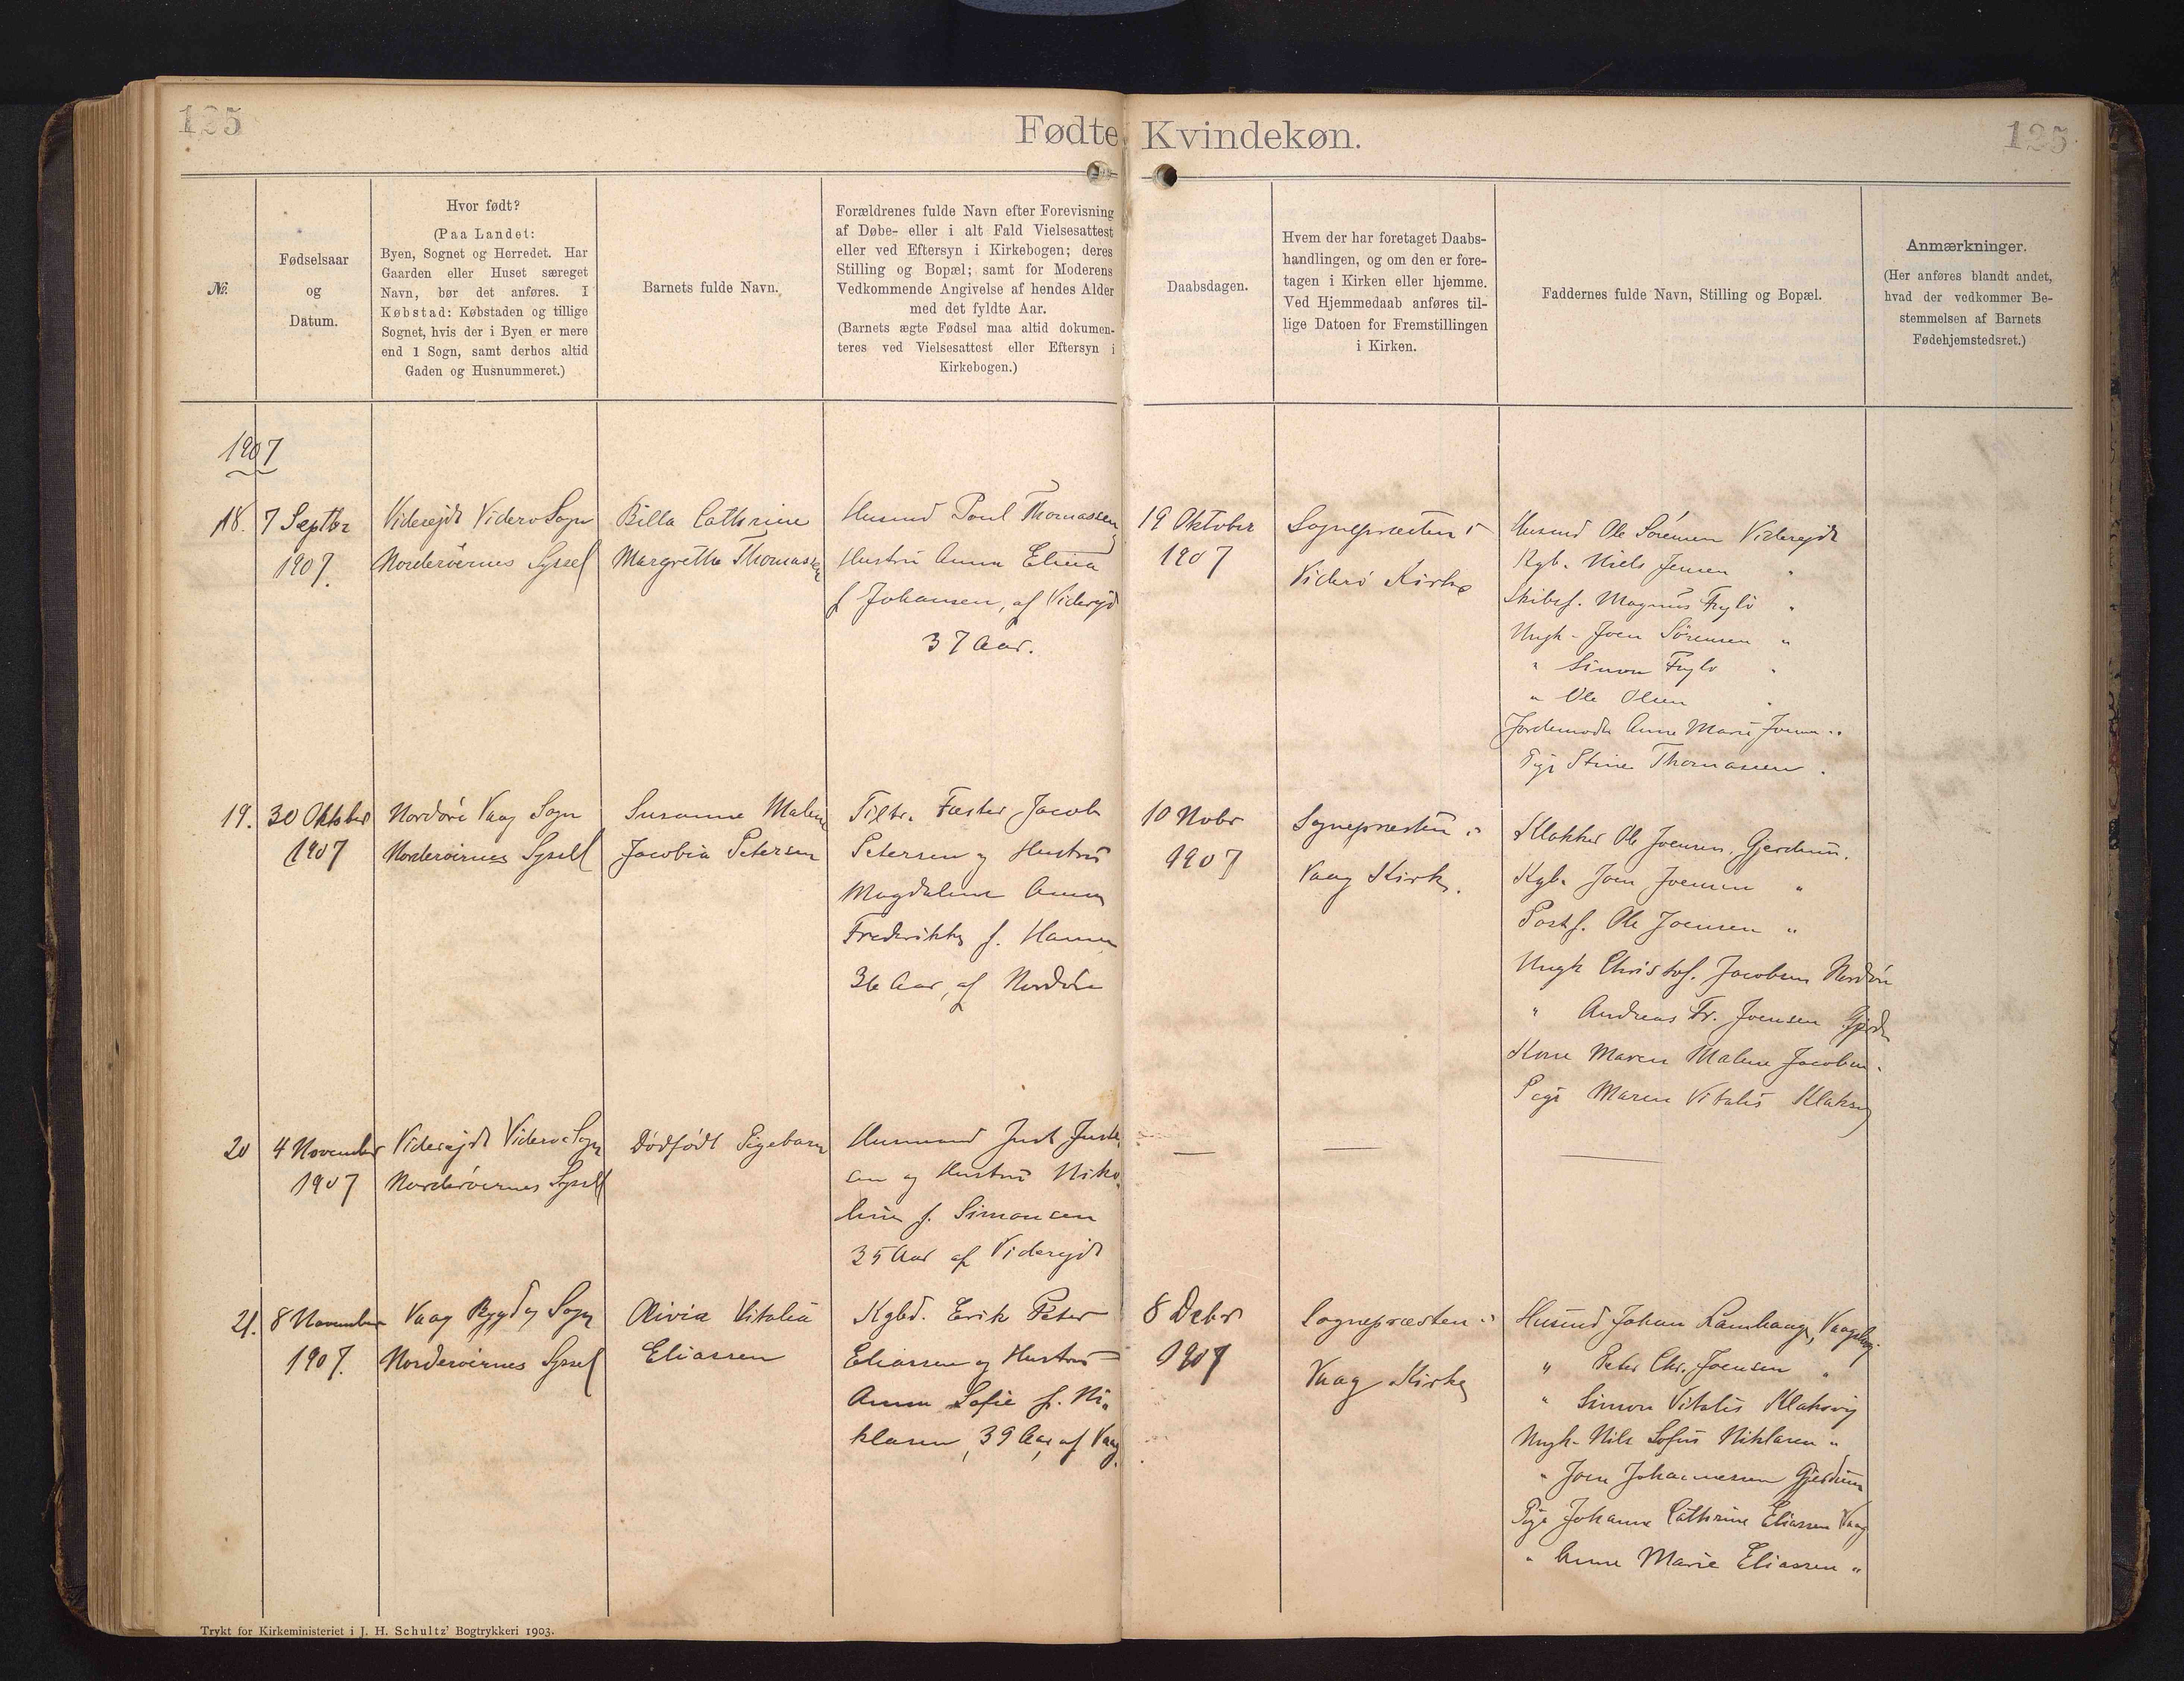 125
Fødte Kvindekøn.
125
Nr.
Fødselsaar
og
Datum.
Hvor født?
(Paa Landet:
Byen, Sognet og Herredet. Har
Gaarden eller Huset særeget
Navn, bør det anføres. I
Købstad: Købstaden og tillige
Sognet, hvis der i Byen er mere
end 1 Sogn, samt derhos altid
Gaden og Husnummeret.)
Barnets fulde Navn.
Forældrenes fulde Navn efter Forevisning
af Døbe- eller i alt Fald Vielsesattest
eller ved Eftersyn i Kirkebogen; deres
Stilling og Bopæl; samt for Moderens
Vedkommende Angivelse af hendes Alder
med det fyldte Aar.
(Barnets ægte Fødsel maa altid dokumen-
teres ved Vielsesattest eller Eftersyn i
Kirkebogen.)
Daabsdagen.
Hvem der har foretaget Daabs-
handlingen, og om den er fore-
tagen i Kirken eller hjemme.
Ved Hjemmedaab anføres til-
lige Datoen for Fremstillingen
i Kirken.
Faddernes fulde Navn, Stilling og Bopæl.
Anmærkninger.
(Her anføres blandt andet,
hvad der vedkommer Be-
stemmelsen af Barnets
Fødehjemstedsret.)
1907
18.
7 Septbr
1907.
Viderejde Viderø Sogn
Norderøernes Syssel
Billa Cathrine
Margretha Thomassen
Husmd Poul Thomassen
Hustru Anna Elina
f Johansen, af Viderejd
37 Aar.
19 Oktober
1907
Sognepræsten i
Viderø Kirke
Husmd Ole Sørensen Viderejde
Kgb. Niels Jensen "
Skibsf. Magnus Fuglø "
Ungk. Joen Sörensen "
" Simon Fuglø "
" Ole Olsen "
Jordemoder Anne Marie Joensen "
Pige Stine Thomassen "
19.
30 Oktober
1907
Nordøre Vaag Sogn
Norderøernes Syssel
Susanne Malene
Jacobia Petersen
Fæster Jacob
Petersen og Hustru
Magdalene Anna
Frederikke f. Hansen
36 Aar, af Nordøre
10 Nobr
1907
Sognepræsten i
Vaag Kirke.
Klokker Ole Joensen, Gjerdum.
Kgb. Joen Joensen "
Postf. Ole Joensen "
Ungk Christof. Jacobsen Nordøre
" Andreas Fr. Joensen Gjerd
Kone Maren Malene Jacobsen.
Pige Maren Vitalis Klaksvig
20
4 November
1907
Viderejde Viderø Sogn
Norderøernes Syssel
Dødfødt Pigebarn
Husmand Just Juste-
sen og Hustru Niko-
line f. Simonsen
35 Aar af Viderejde
21.
8 November
1907.
Vaag Bygd og Sogn
Norderøernes Syssel
Olivia Vitalia
Eliassen
Kgbd. Erik Peter
Eliassen og Hustru
Anna Sofie f. Ni-
klasen, 39 Aar, af Vaag.
8 Debr
1907
Sognepræsten i
Vaag Kirke
Husmd Johan Lamhauge, Vaagsbygd
" Peter Chr. Joensen "
" Simon Vitalis Klaksvig
Ungk. Nils Sofus Niklasen "
" Joen Johannesen Gjerdum
Pige Johanne Cathrine Eliassen Vaag
" Anne Marie Eliassen "
Trykt for Kirkeministeriet i J. H. Schultz' Bogtrykkeri 1903.